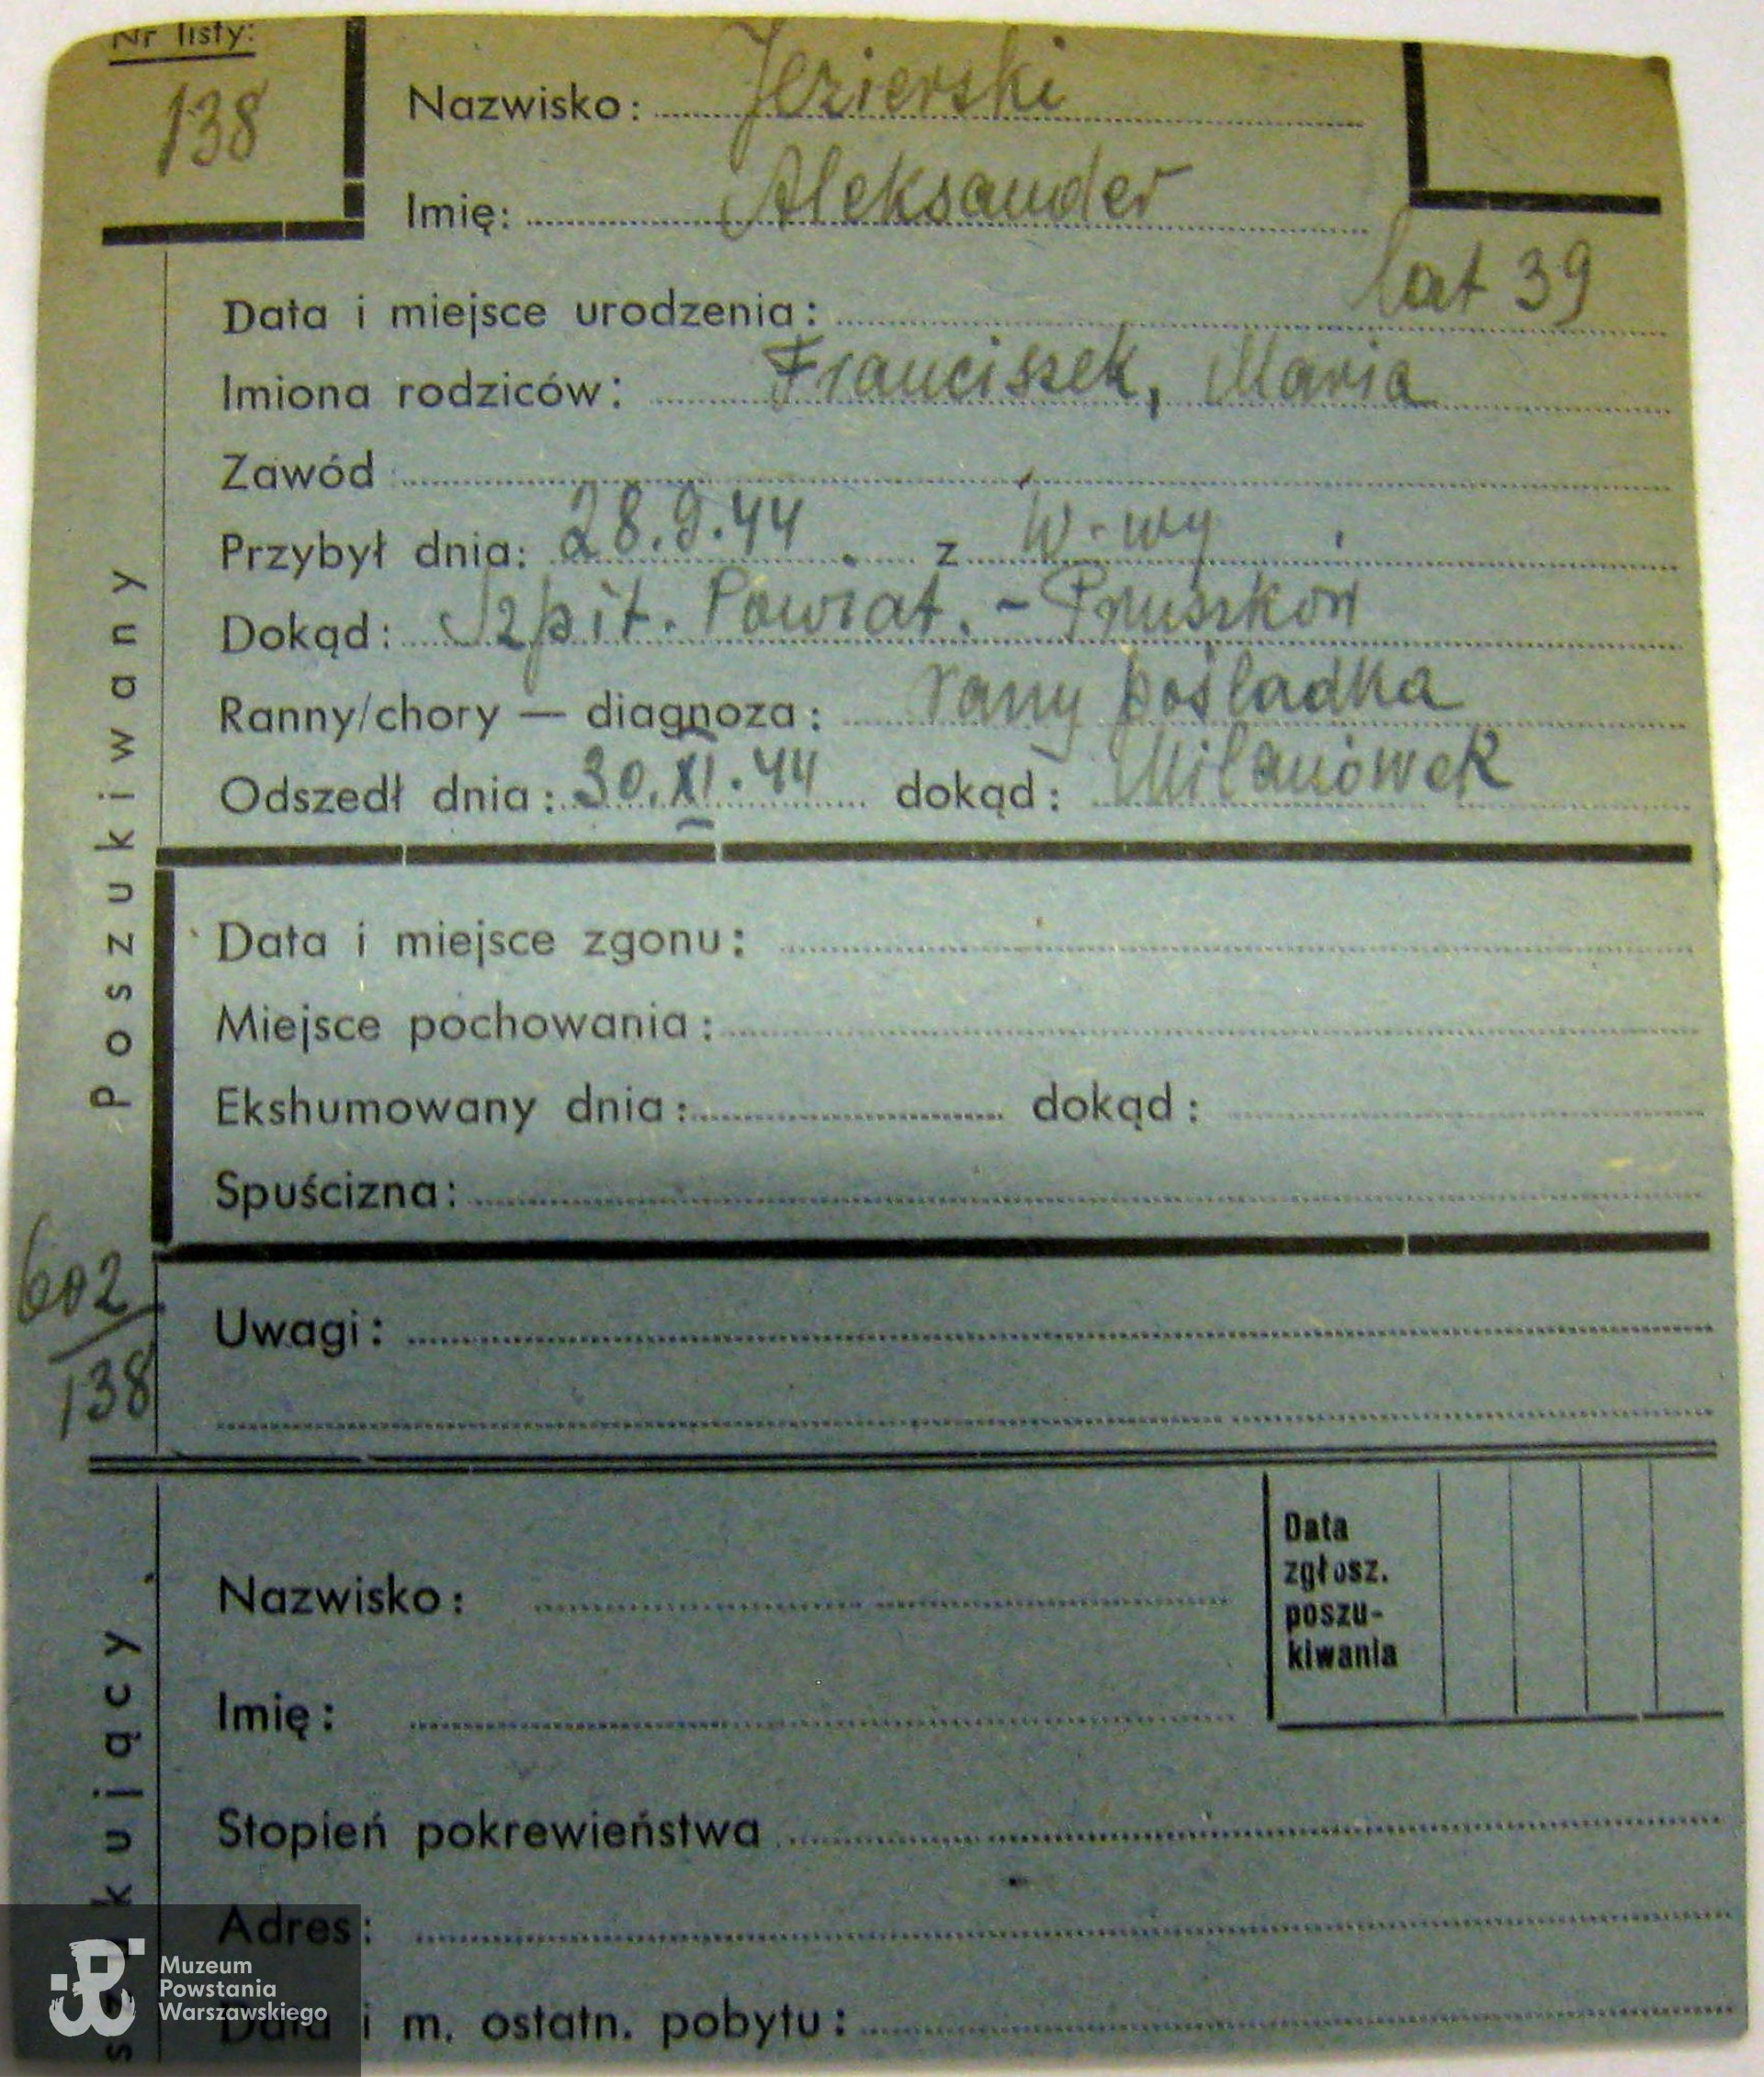 Nr listy:
138
Nazwisko: Jezierski
Imię: Aleksander
Data i miejsce urodzenia: lat 39
Imiona rodziców: Franciszek, Maria
Zawód
Przybył dnia: 28.9.44 z W-wy
Dokąd: Szpit. Powiat. - Pruszków
Ranny/chory — diagnoza: rany pośladka
Odszedł dnia: 30.XI.44 dokąd: Milanówek
Poszukiwany
Data i miejsce zgonu:
Miejsce pochowania:
Ekshumowany dnia: dokąd:
Spuścizna:
602
138
Uwagi:
Nazwisko:
Data
zgłosz.
poszu-
kiwania
Imię:
Stopień pokrewieństwa
Adres:
Data i m. ostatn. pobytu:
Muzeum
Powstania
Warszawskiego